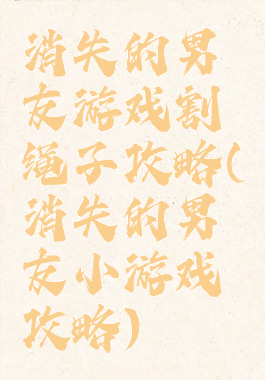 消失的男
友游戏割
绳子攻略(
消失的男
友小游戏
攻略)